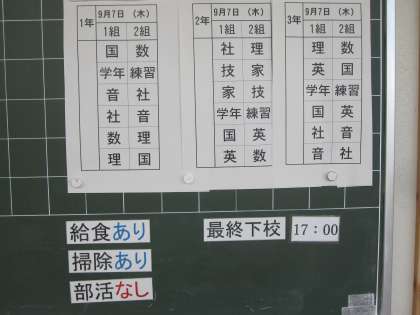 1年 9月7日(木)
1組 2組
国 数
学年 練習
音 社
社 音
数 理
理 国
2年 9月7日(木)
1組 2組
社 理
技 家
家 技
学年 練習
国 英
英 数
3年 9月7日(木)
1組 2組
理 数
英 国
学年 練習
国 英
社 音
音 社
給食あり
掃除あり
部活なし
最終下校 17:00